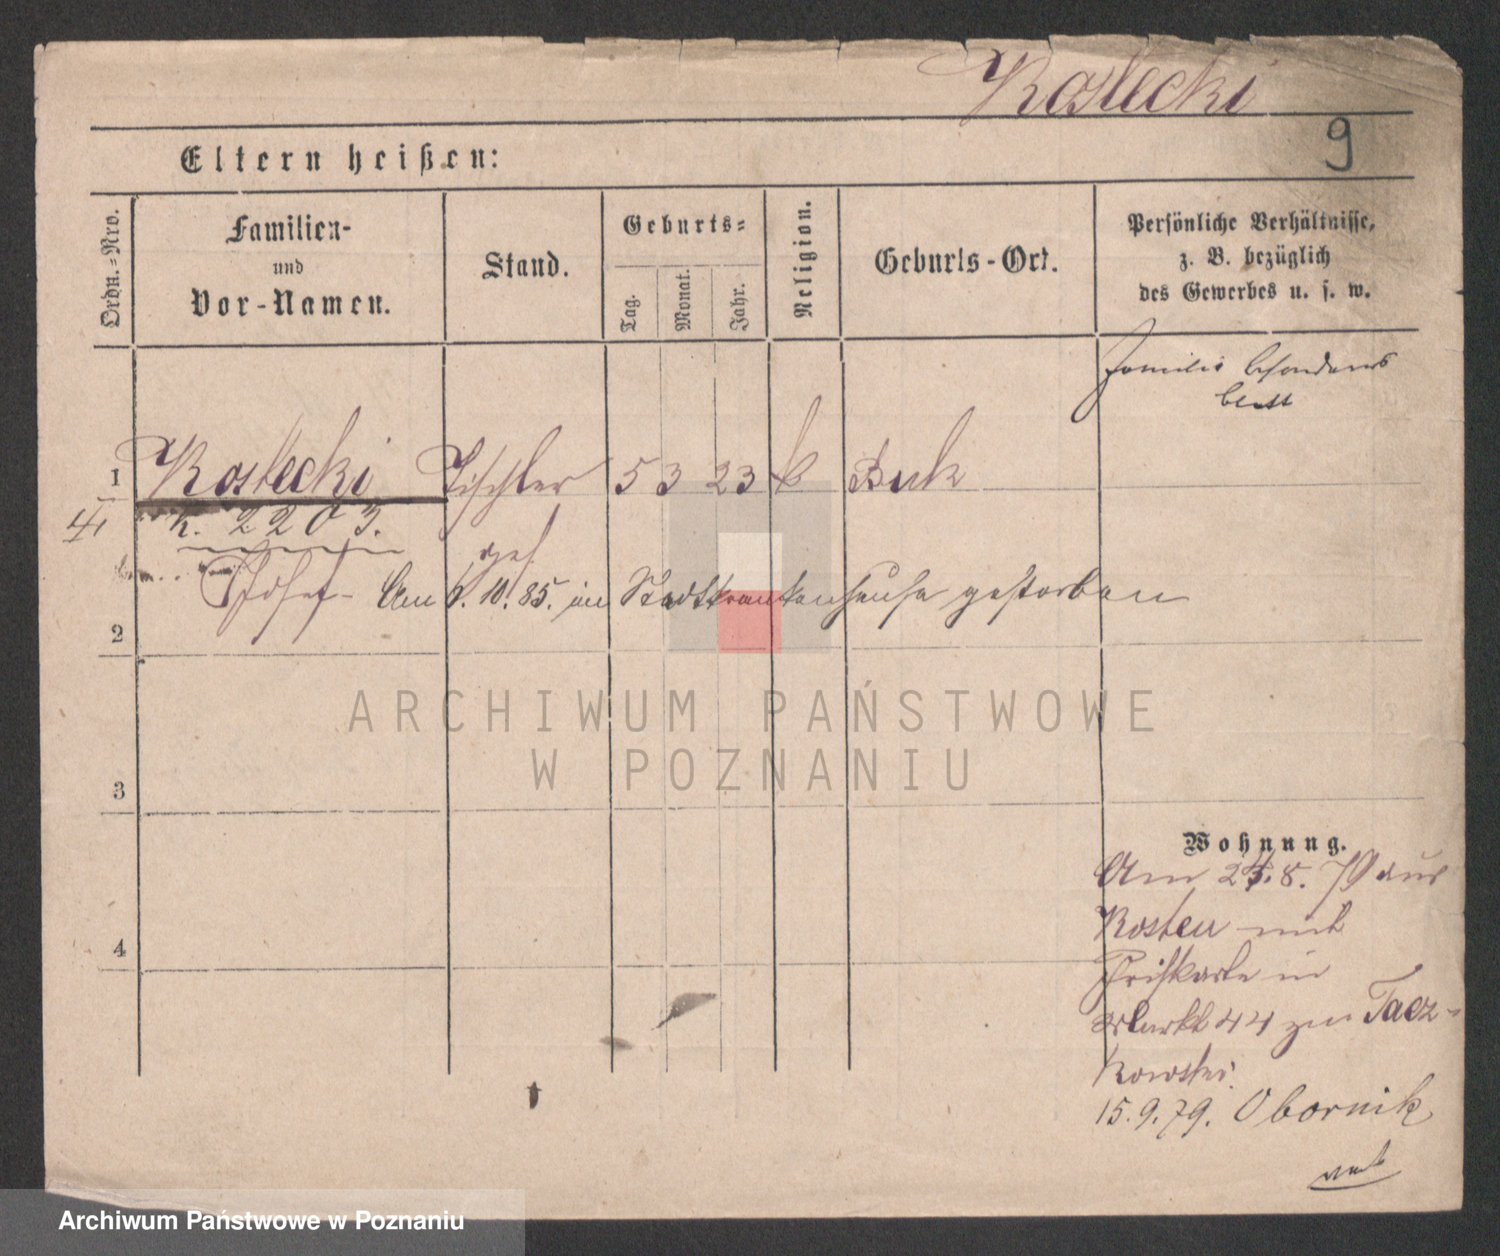 Kostecki
9
Eltern heißen:
Ordn.-Nro.
Familien-
und
Vor-Namen.
Stand.
Geburts-
Tag.
Monat.
Jahr.
Religion.
Geburts-Ort.
Persönliche Verhältnisse,
z. B. bezüglich
des Gewerbes u. s. w.
Familie besonderes
blatt
1 Kostecki Tischler 5 3 23 k Buk
K. 2203.
gest
2 Josef - Am 6. 10. 85. im Stadtkrankenhause gestorben
ARCHIWUM PAŃSTWOWE
W POZNANIU
3
Wohnung.
Am 25.8. 79 aus
Kosten mit
in
4
Markt 44 zu Tacz-
kowski.
15.9.79. Obornik
Archiwum Państwowe w Poznaniu